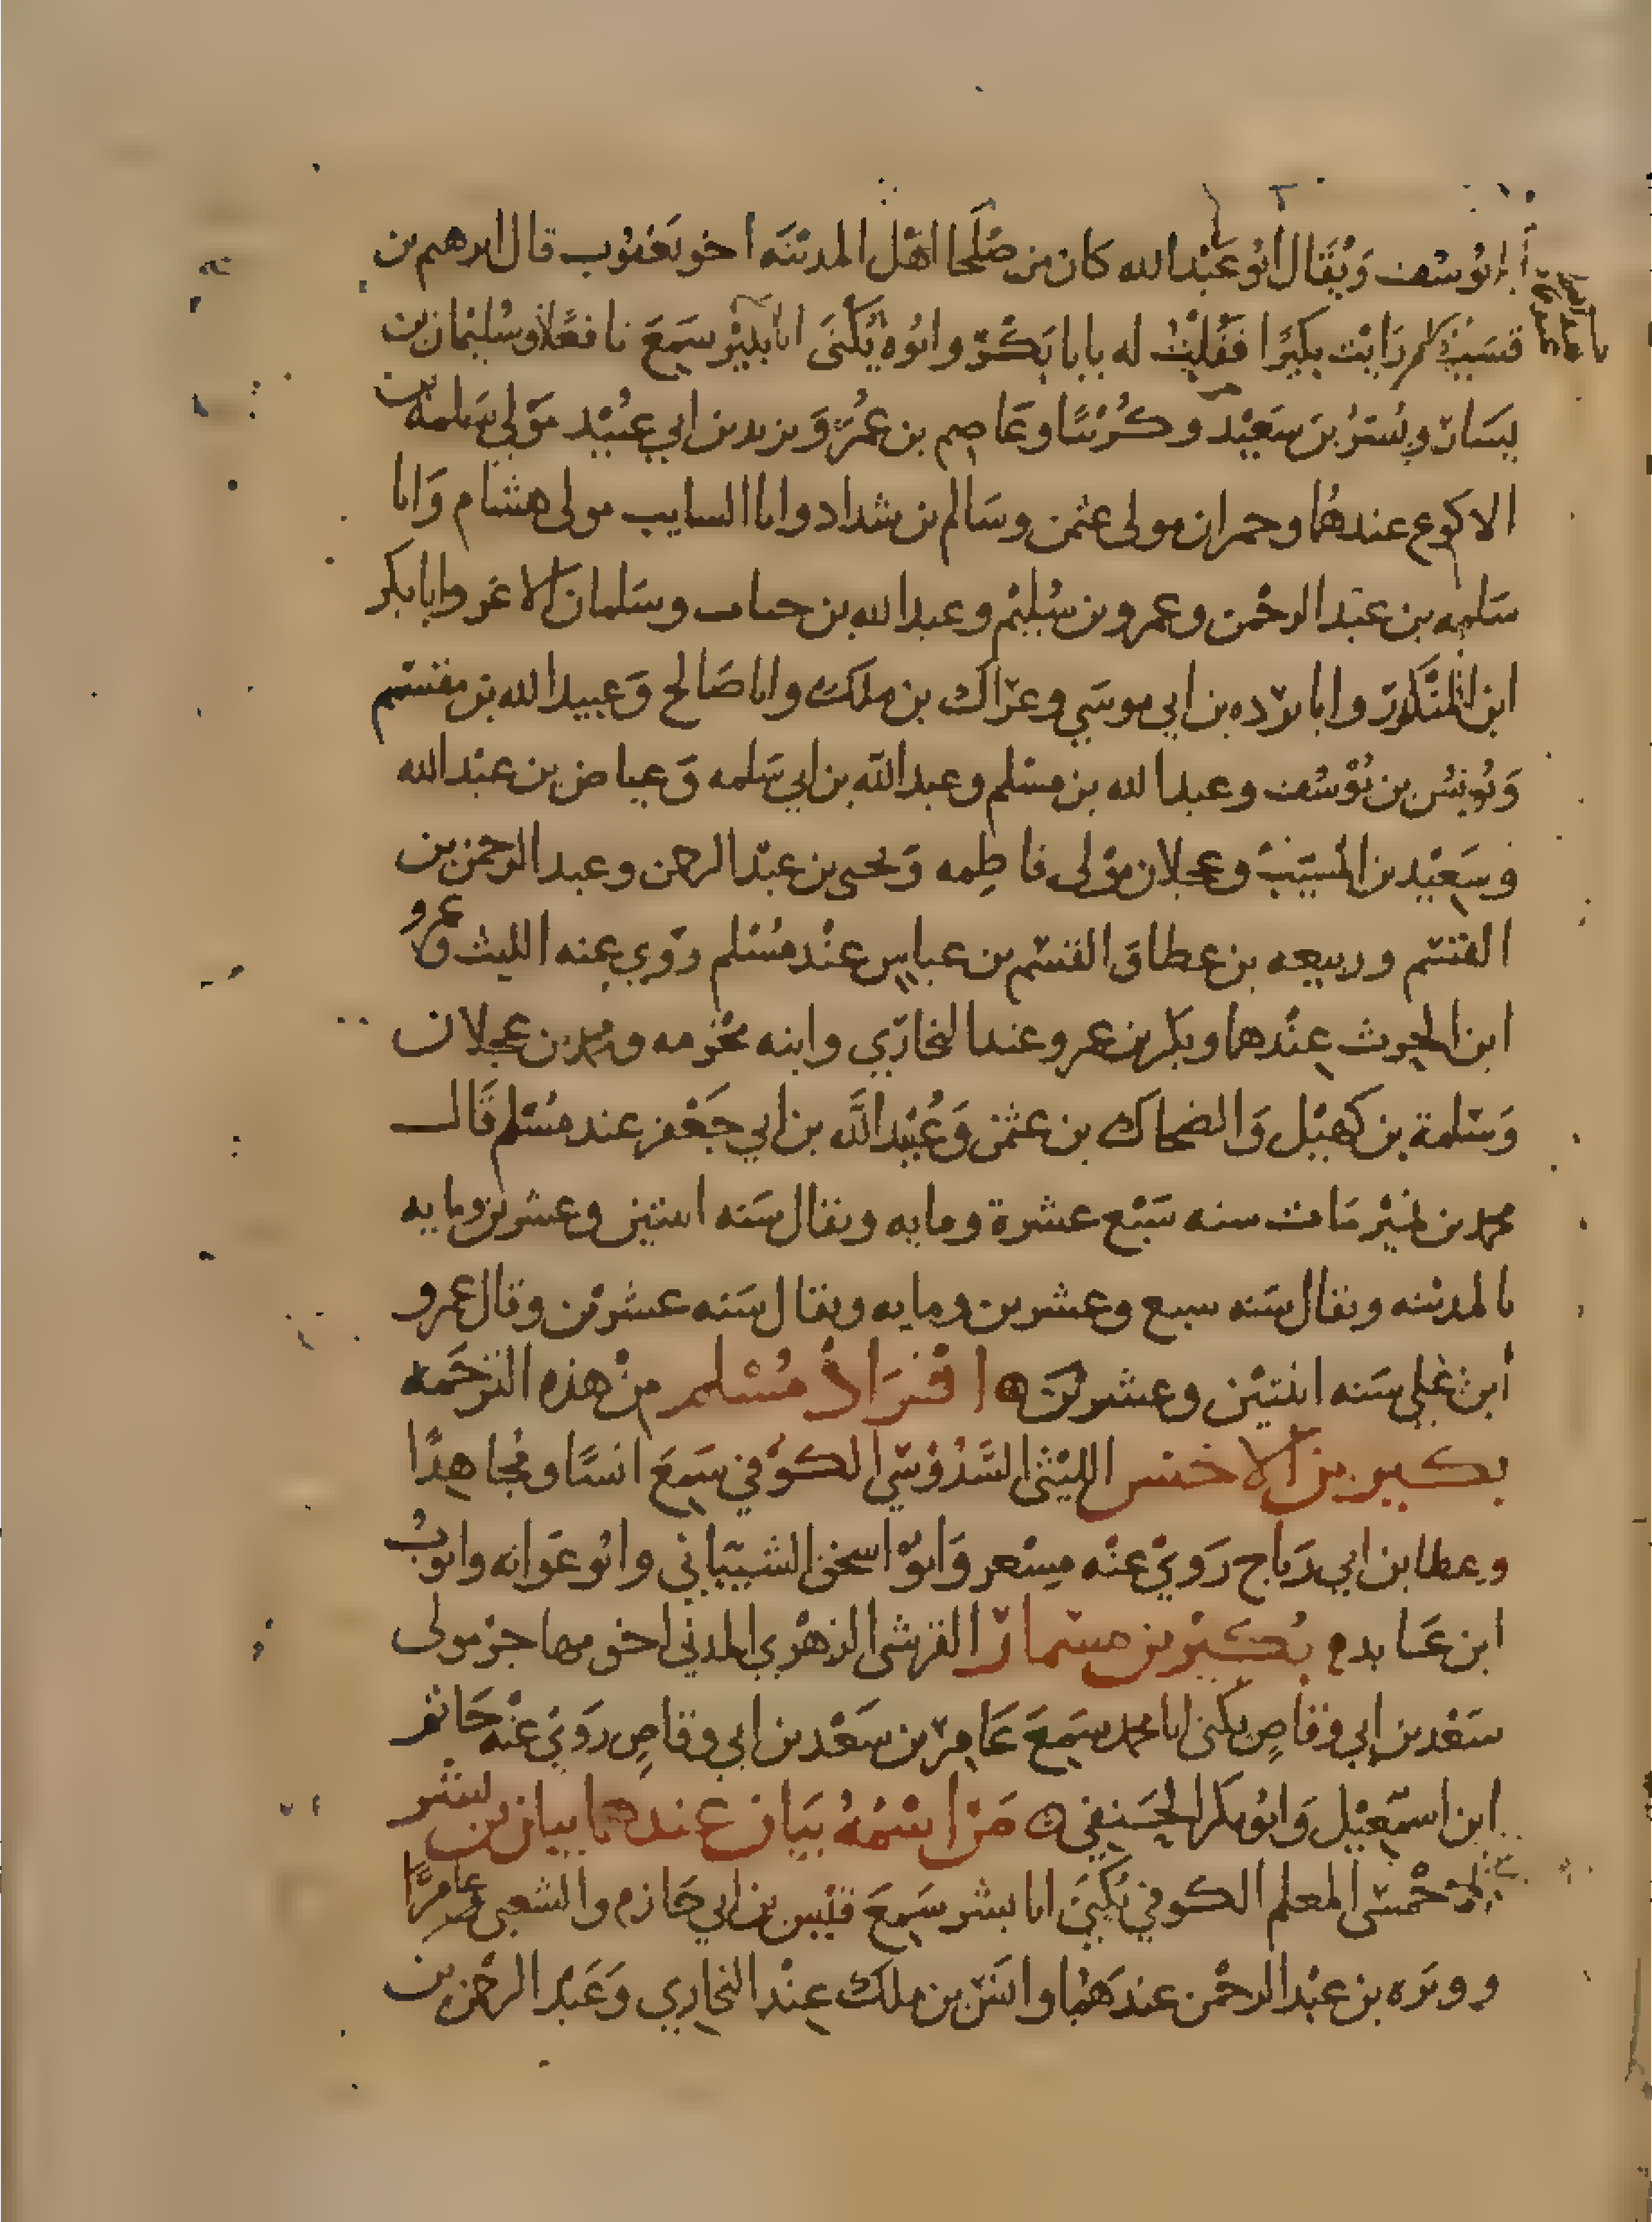 ابو يوسف ويقال ابو عبد الله كان من صلحا اهل المدينه اخو يعقوب قال ابرهيم بن
رايت بكيرا فقلت له يابا بكر وابوه يكنى سمع نافعا وسليمان بن
يسار وبسر بن سعيد وكريبا وعاصم بن عمر ويزيد بن ابي عبيد مولى سلمة بن
الاكوع عندهما وحمران مولى عثمن وسالم بن شداد وابا السايب مولى هشام وابا
سلمه بن عبد الرحمن وعمرو بن سليم وعبد الله بن حباب وسلمان الاغر وابا بكر
ابن المنكدر وابا برده بن ابي موسي وعراك بن ملك وابا صالح وعبيد الله بن مقسم
ويونس بن يوسف وعبد الله بن مسلم وعبد الله بن ابي سلمه وعياض بن عبد الله
وسعيد بن المسيب وعجلان مولى فاطمه ويحيى بن عبد الرحمن وعبد الرحمن بن
القسم وربيعه بن عطا والقسم بن عباس عند مسلم روي عنه الليث وعمرو
ابن الحرث عندهما وبكر بن عمرو عند البخاري وابنه مخرمه ومحمد بن عجلان
وسلمة بن كهيل والضحاك بن عثمن وعبيد الله بن ابي جعفر عند مسلم قال
محمد بن نمير مات سنه سبع عشرة ومايه ويقال سنه اثنتين وعشرين ومايه
بالمدينه ويقال سنه سبع وعشرين ومايه ويقال سنه عشرين وقال عمرو
ابن علي سنه اثنتين وعشرين افراد مسلم من هذه الترجمه
بكير بن الاخنس الليثي السدوسي الكوفي سمع انسا ومجاهدا
وعطا بن ابي رباح روي عنه مسعر وابو اسحق الشيباني وابو عوانه وايوب
ابن عايد م بكير بن مسمار القرشي الزهري المدني اخو مهاجر مولى
سعد بن ابي وقاص يكنى ابا محمد سمع عامر بن سعد بن ابي وقاص روي عنه حاتم
ابن اسمعيل وابو بكر الحنفي من اسمه بيان عندهما بيان بن بشر
الاحمسي المعلم الكوفي يكنى ابا بشر سمع قيس بن ابي حازم والشعبي عامرا
ووبره بن عبد الرحمن عندهما وانس بن ملك عند البخاري وعبد الرحمن بن